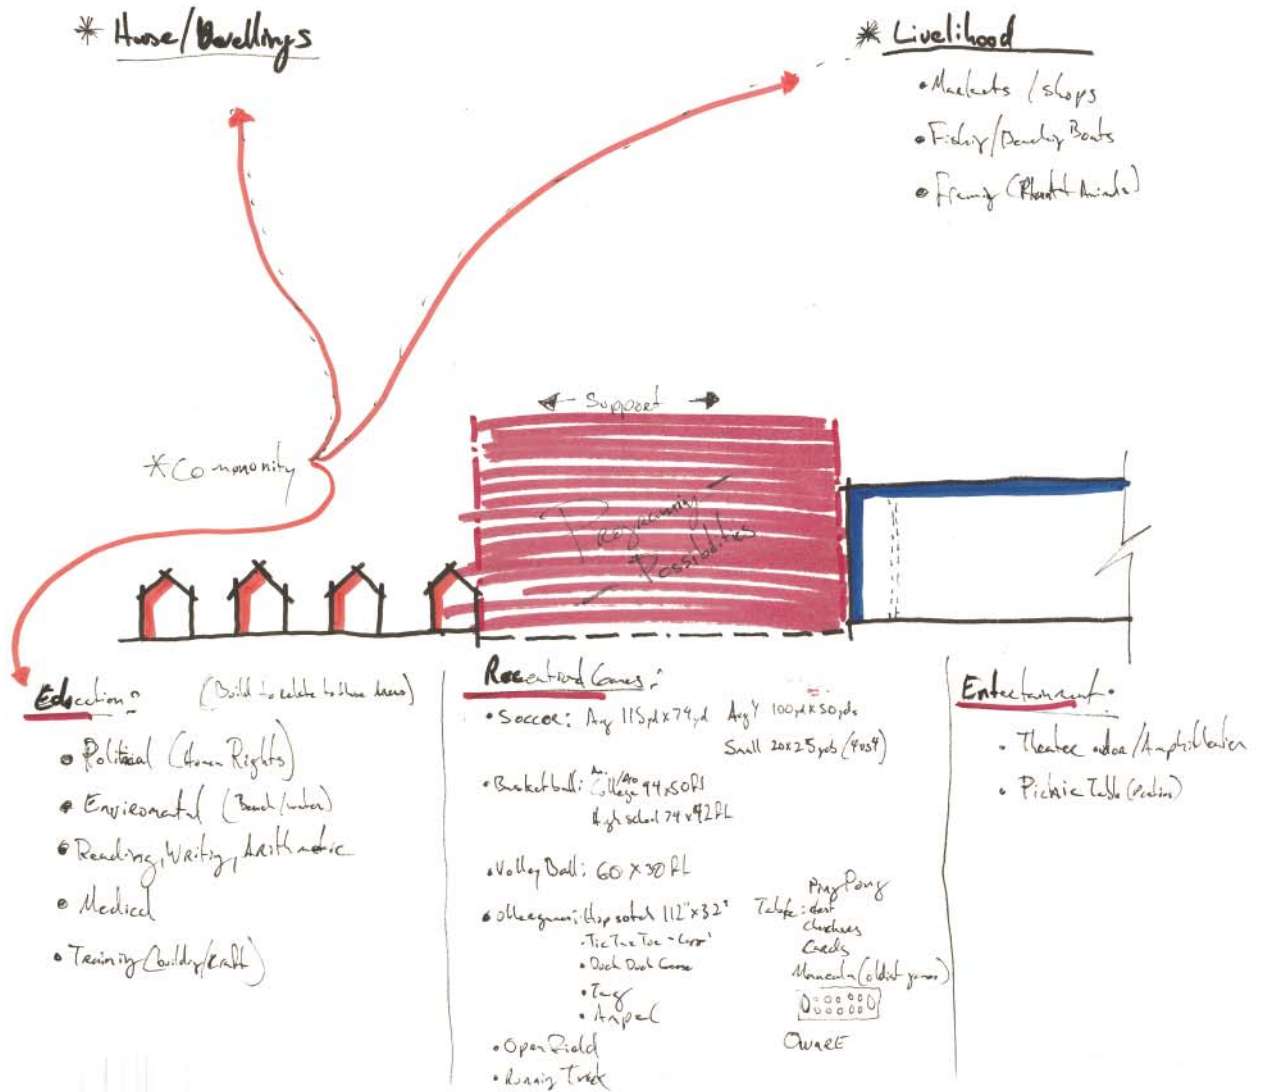 * House/Dwellings
* Livelihood
• Markets / shops
• Fishing/Docking Boats
• Farming (Plant + Animals)
Support
* Commonity
Programming
Possibilities
Education: (Build to relate to those areas)
• Political (Human Rights)
• Enviromental (Beach/water)
• Reading, Writing, Arithmetic
• Medical
• Training
Recreational Games:
• Soccer: Avg 115yd x 74yd
100yd x 50yds
Small 20x25 yds (4vs4)
• Basketball: College/Pro 94x50ft
High school 74x42ft
• Volley Ball: 60 x 30ft
Hopscotch 112"x32"
• Tic Tac Toe
• Duck Duck Goose
• Tag
• Ampe
• Open Field
• Running Track
Ping Pong
Table:
checkers
Cards
Mancala (oldest games)
OwarE
Entertainment:
• Theater /Amphitheater
• Picnic Table